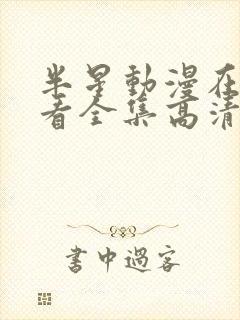 半星動漫在
看全集高清
書中過客